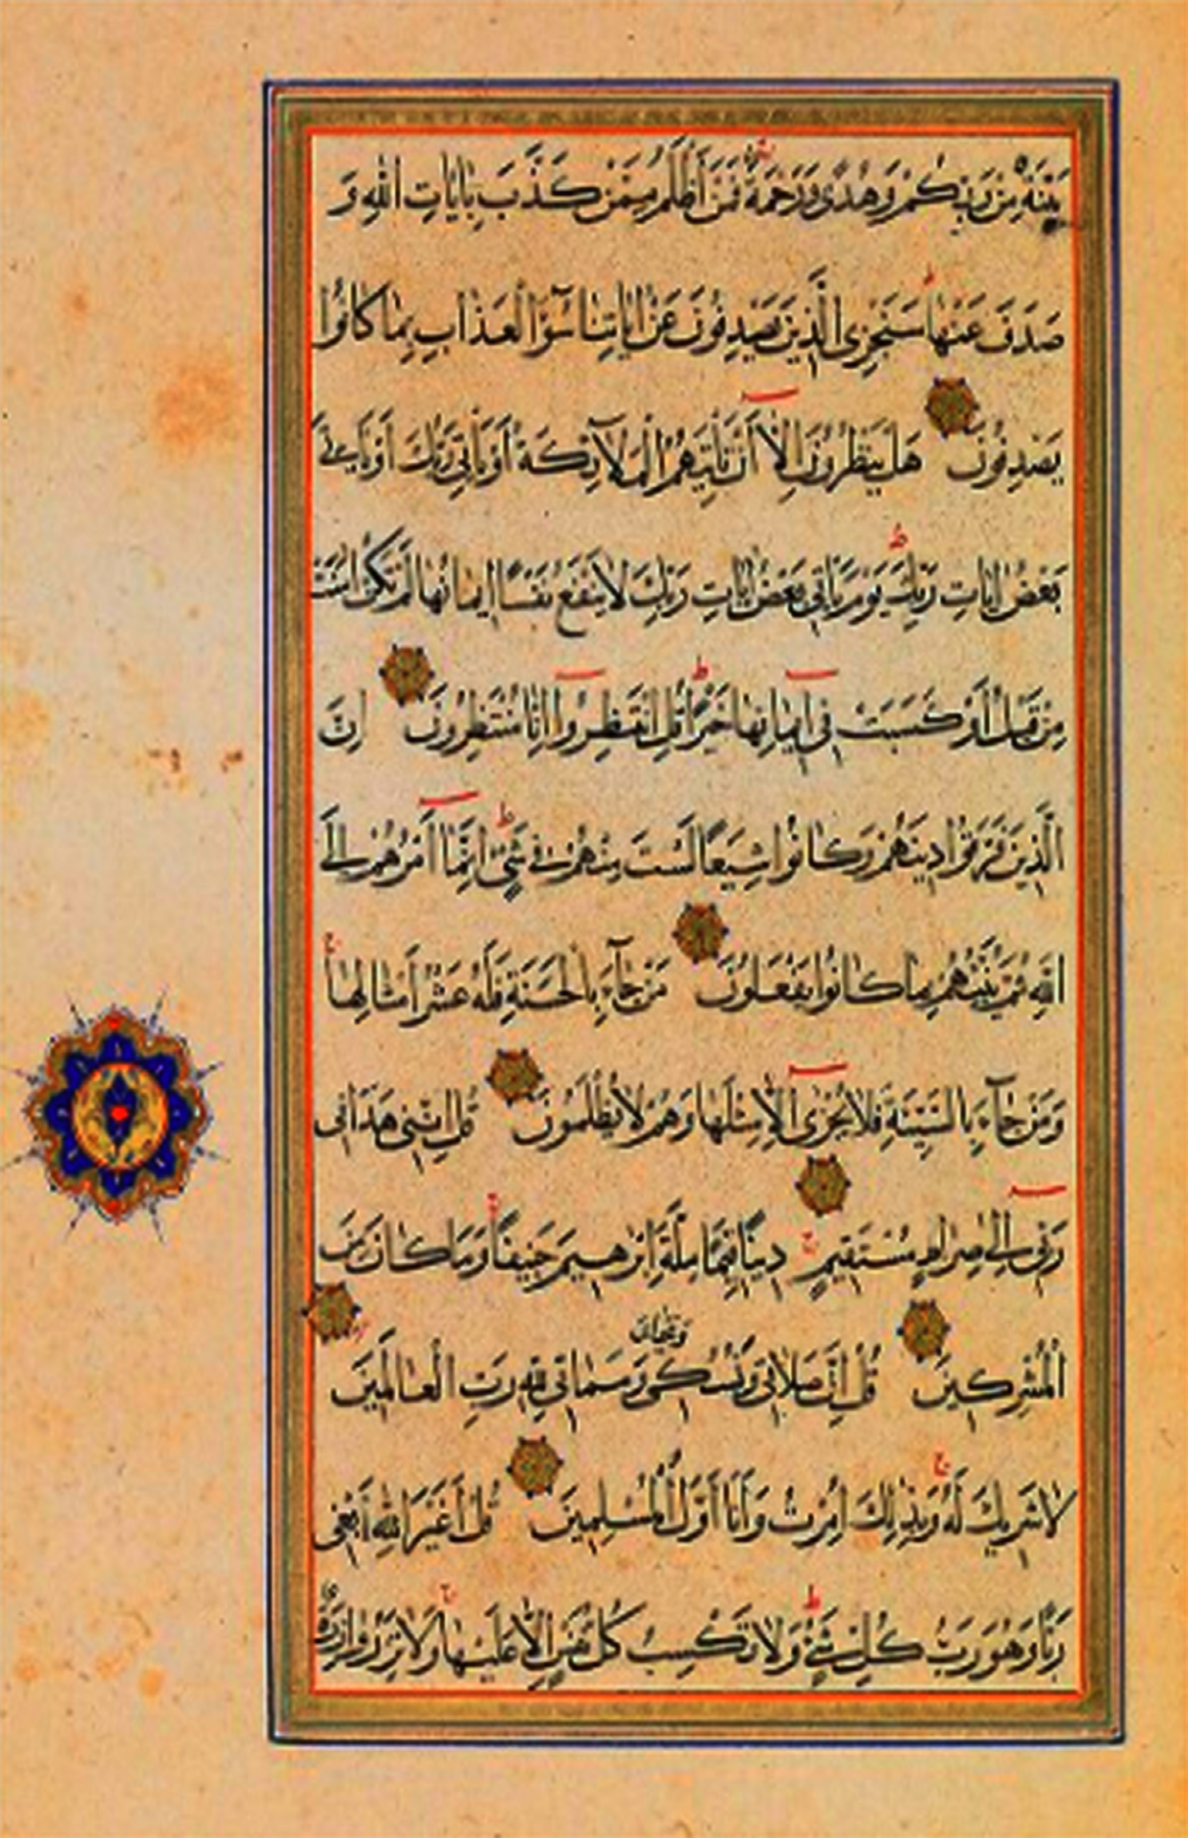 بَيِّنَةٌ مِنْ رَبِّكُمْ وَهُدًى وَرَحْمَةٌ فَمَنْ أَظْلَمُ مِمَّنْ كَذَّبَ بِاٰيَاتِ اللّٰهِ وَ
صَدَفَ عَنْهَا سَنَجْزِي الَّذِينَ يَصْدِفُونَ عَنْ اٰيَاتِنَا سُوٓءَ الْعَذَابِ بِمَا كَانُوا
يَصْدِفُونَ هَلْ يَنْظُرُونَ إِلَّا أَنْ تَأْتِيَهُمُ الْمَلَآئِكَةُ أَوْ يَأْتِيَ رَبُّكَ أَوْ يَأْتِيَ
بَعْضُ اٰيَاتِ رَبِّكَ يَوْمَ يَأْتِي بَعْضُ اٰيَاتِ رَبِّكَ لَا يَنْفَعُ نَفْسًا إِيمَانُهَا لَمْ تَكُنْ اٰمَنَتْ
مِنْ قَبْلُ أَوْ كَسَبَتْ فِي إِيمَانِهَا خَيْرًا قُلِ انْتَظِرُوا إِنَّا مُنْتَظِرُونَ إِنَّ
الَّذِينَ فَرَّقُوا دِينَهُمْ وَكَانُوا شِيَعًا لَسْتَ مِنْهُمْ فِي شَيْءٍ إِنَّمَا أَمْرُهُمْ إِلَى
اللّٰهِ ثُمَّ يُنَبِّئُهُمْ بِمَا كَانُوا يَفْعَلُونَ مَنْ جَآءَ بِالْحَسَنَةِ فَلَهُ عَشْرُ أَمْثَالِهَا
وَمَنْ جَآءَ بِالسَّيِّئَةِ فَلَا يُجْزَى إِلَّا مِثْلَهَا وَهُمْ لَا يُظْلَمُونَ قُلْ إِنَّنِي هَدَانِي
رَبِّي إِلَى صِرَاطٍ مُسْتَقِيمٍ دِينًا قِيَمًا مِلَّةَ إِبْرٰهِيمَ حَنِيفًا وَمَا كَانَ مِنَ
الْمُشْرِكِينَ قُلْ إِنَّ صَلَاتِي وَنُسُكِي وَمَحْيَايَ وَمَمَاتِي لِلّٰهِ رَبِّ الْعَالَمِينَ
لَا شَرِيكَ لَهُ وَبِذٰلِكَ أُمِرْتُ وَأَنَا أَوَّلُ الْمُسْلِمِينَ قُلْ أَغَيْرَ اللّٰهِ أَبْغِي
رَبًّا وَهُوَ رَبُّ كُلِّ شَيْءٍ وَلَا تَكْسِبُ كُلُّ نَفْسٍ إِلَّا عَلَيْهَا وَلَا تَزِرُ وَازِرَةٌ